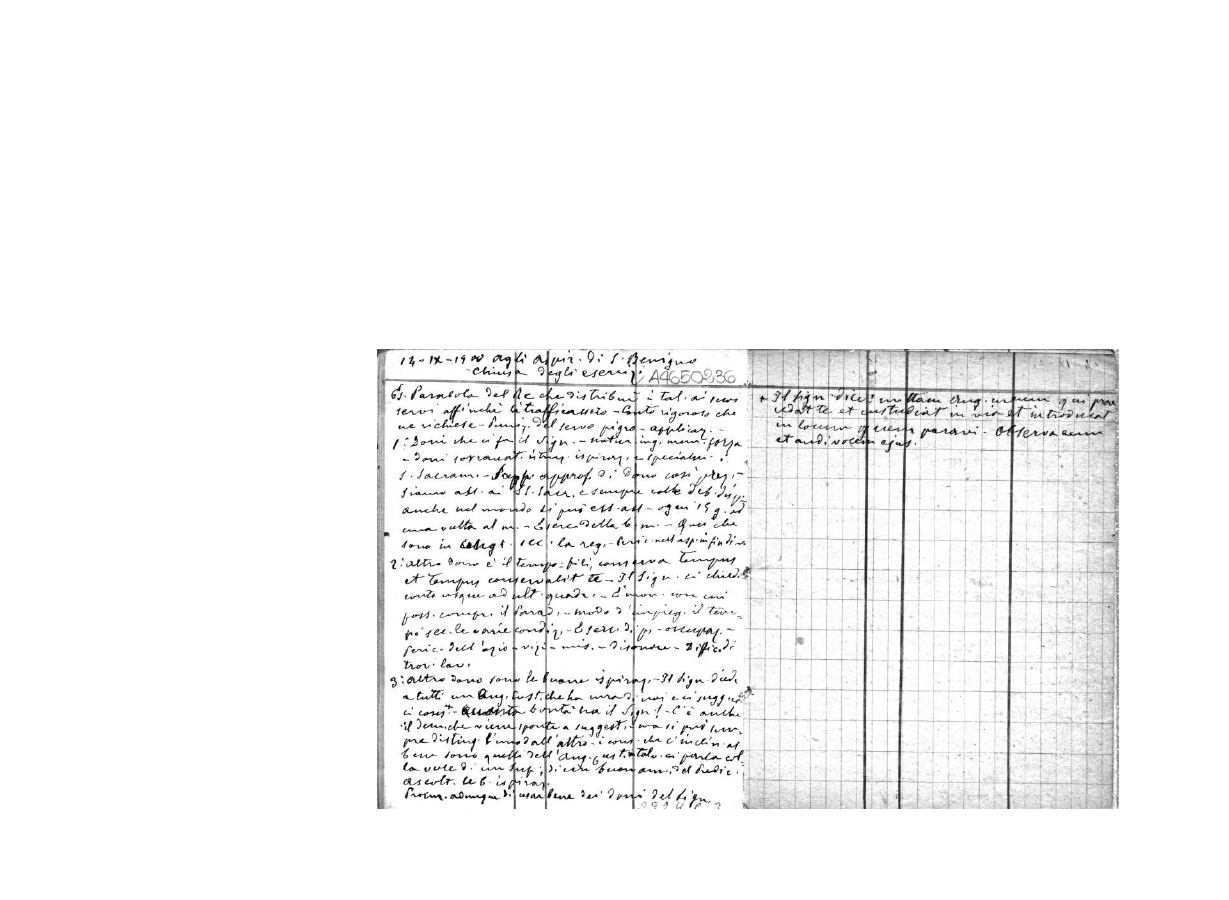 14-IX-1900 agli aspir. di S. Benigno
Chiusa degli eserciz.
A4650236
Es. Parabola del Re che distribuì i tal. ai suoi
servi affinchè li trafficassero - Conto rigoroso che
ne richiese - Puniz. del servo pigro - applicaz. -
1°: Doni che ci fa il Sign. - natur. ing. mem. forza
- Doni sovranat. ispiraz. e specialm. i
S. Sacram. - approf. di dono così prez. -
siamo ass. ai SS. Sacr. e sempre colle deb. disp.
anche nel mondo si può ess. ass. - ogni 15 g. od
una volta al m. - Eserc. della b. m. - Quei che
sono in sec. la reg. -
2°: altro dono è il tempo. fili, conserva tempus
et tempus conservabit te - Il Sign. ci chied.
conto usque ad ult. quadr. - con cui
poss. compr. il Parad. - modo d'impieg. il tem-
po sec. le varie condiz. - Eserc. di p. - occupaz. -
peric. dell'ozio - vizi - mis. - disonore - Diffic. di
trov. lav.
3°: altro dono sono le buone ispiraz. - Il Sign. diede
a tutti un Ang. Cust. che ha cura di noi e ci sugg.
ci cons. - Quanta bontà ha il Sign.! - C'è anche
il dem. che viene a suggest. ma si può sem-
pre disting. l'uno dall'altro - i cons. che c'inclin. al
bene sono quelli dell'Ang. Cust. talv. ci parla col-
la voce di un Sup., di un buon am., del Predic.
ascolt. le b. ispiraz.
Procur. adunque di usar bene dei doni del Sign.
+ Il Sign. dice: mittam Ang. meum qui prae-
cedat te et custodiat in via et introducat
in locum quem paravi - Observa eum
et audi vocem ejus.